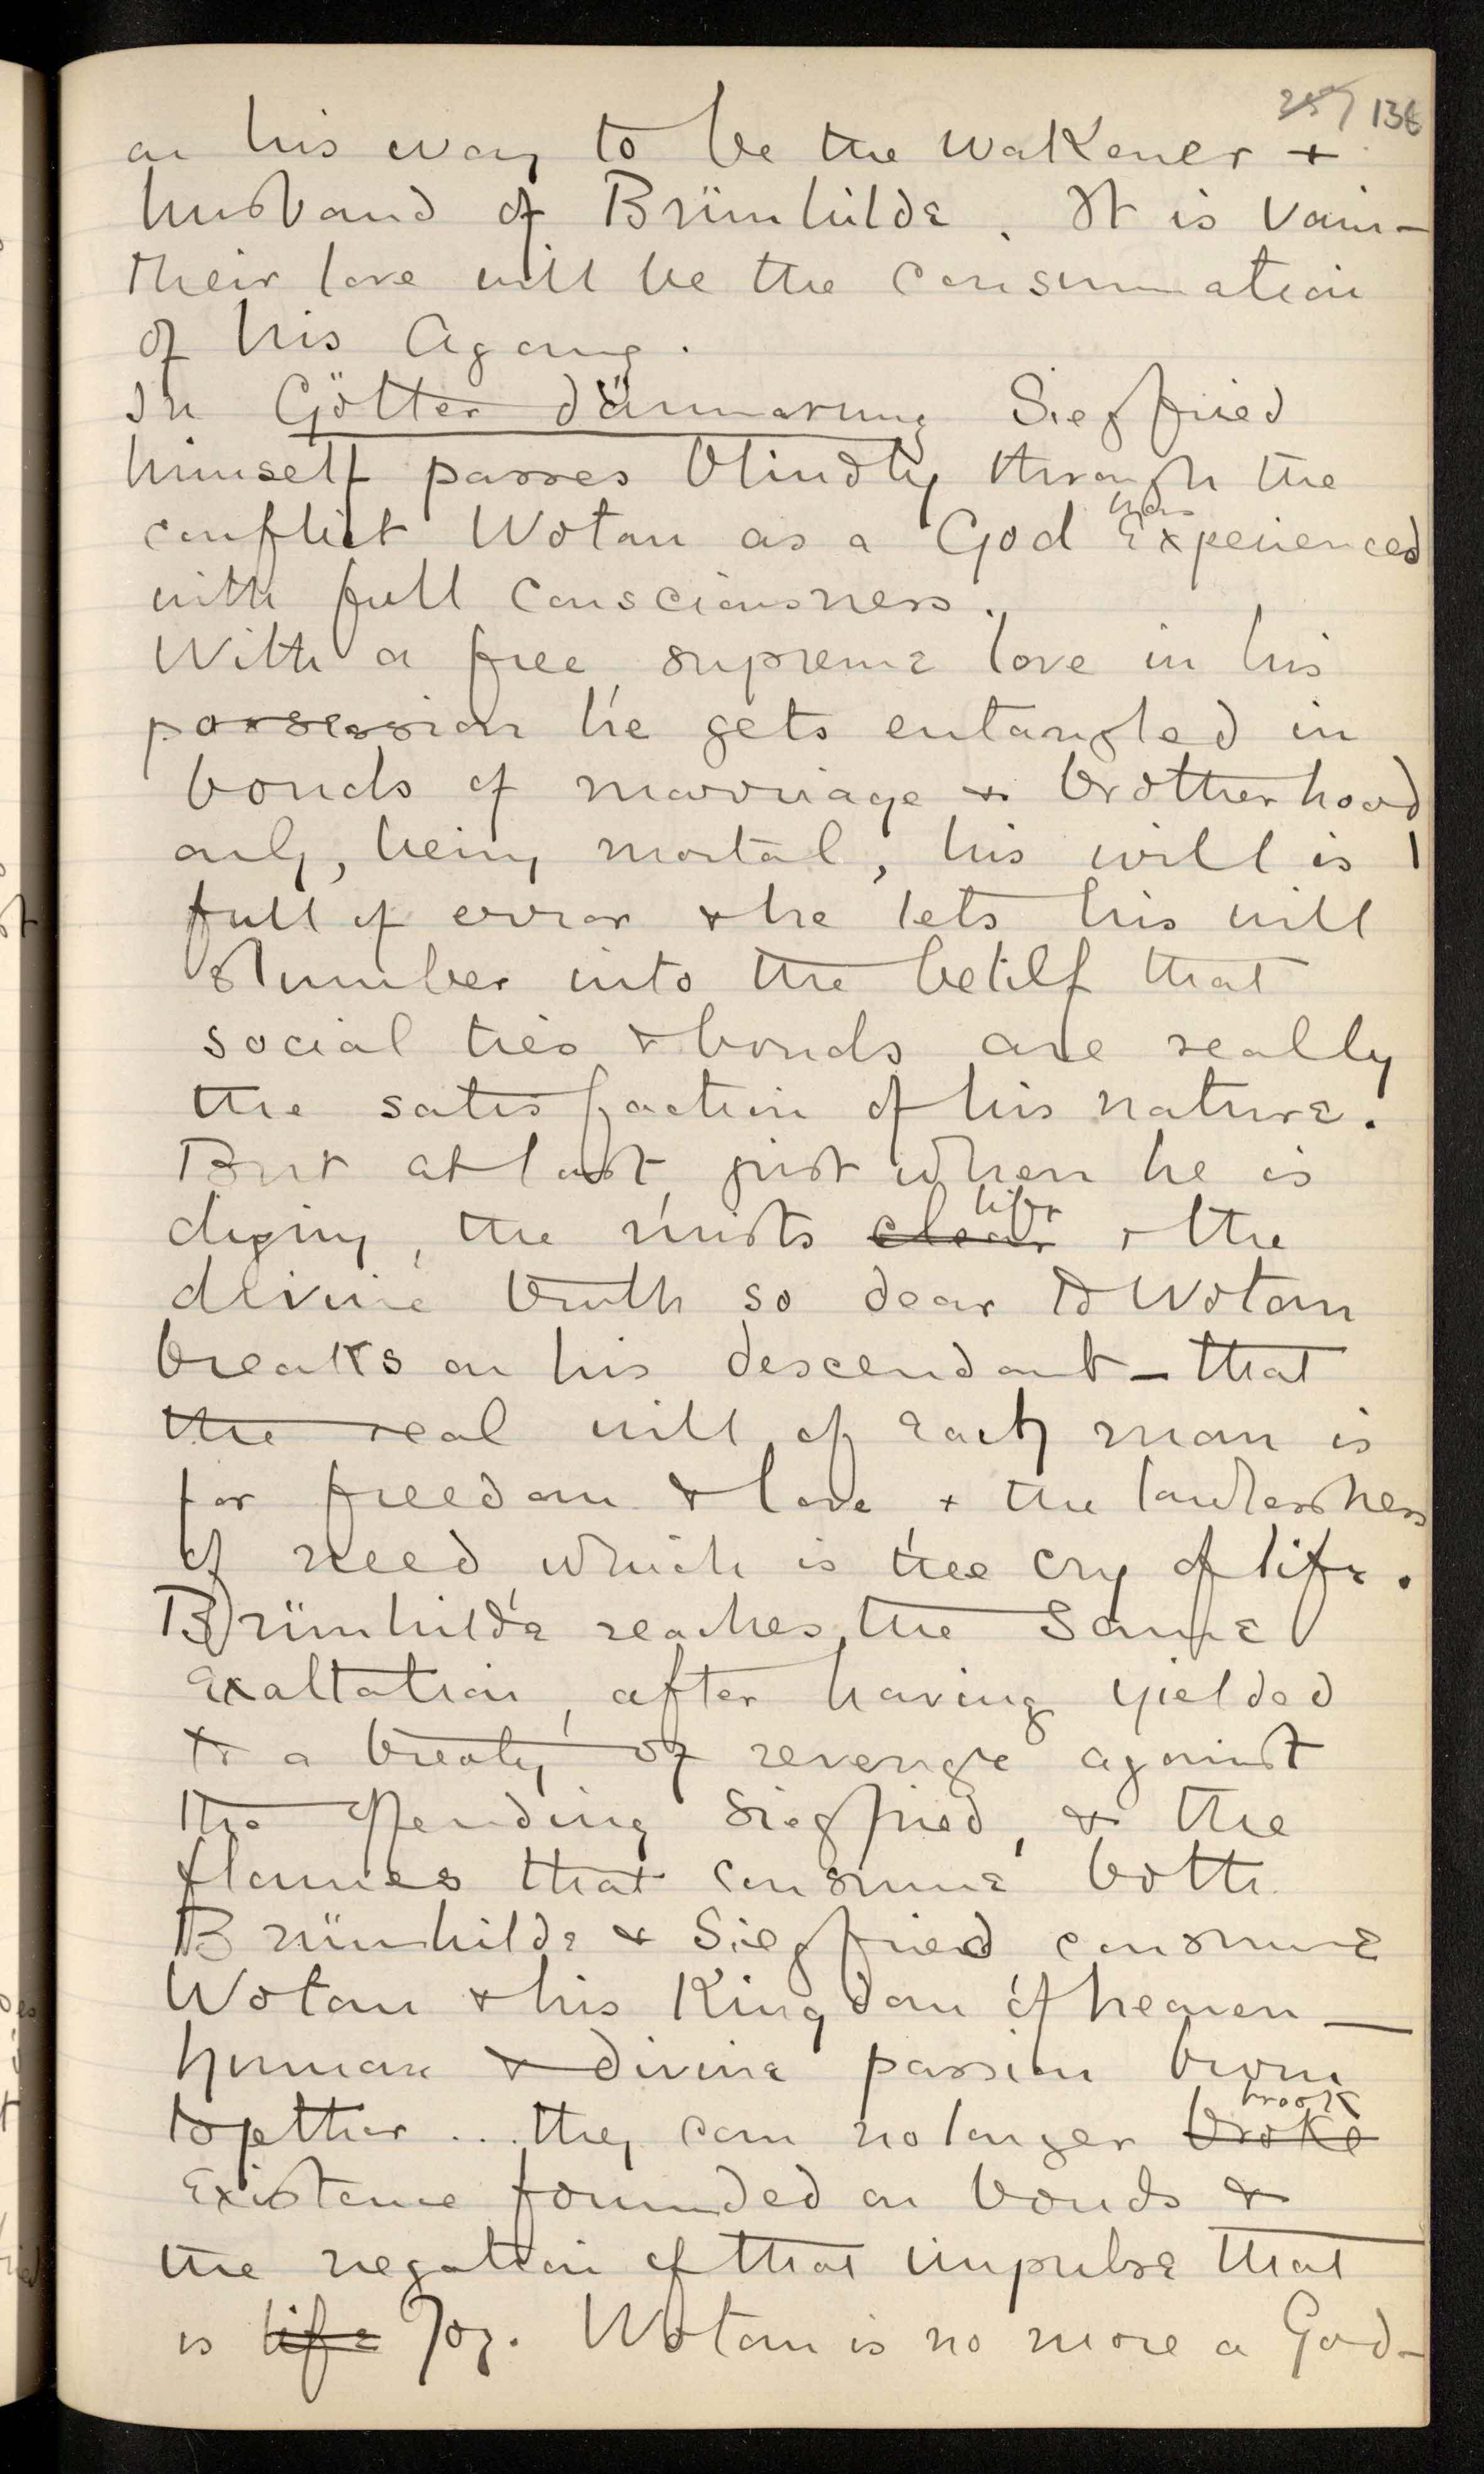 257 138
on his way to be the wakener +
husband of Brünhilde. It is vain –
their love will be the consummation
of his Agony.
In Götter dämmerung Siegfried
himself passes blindly through the
has
conflict Wotan as a God experienced
with full consciousness.
With a free supreme love in his
possession he gets entangled in
bonds of marriage & brotherhood
only, being mortal, his will is
full of error & he lets his will
slumber into the belief that
social ties & bonds are really
the satisfaction of his nature.
But at last, just when he is
lift
dying, the mists clear & the
divine truth so dear to Wotan
breaks on his descendant – that
the real will of each man is
for freedom & love & the lawlessness
of need which is the cry of life.
Brünhilde reaches the same
exaltation, after having yielded
to a treaty of revenge against
the offending Siegfried, & the
flames that consume both
Brünhilde & Siegfried consume
Wotan & his Kingdom of heaven –
human & divine passion burn
brook
together ... they can no longer broke
existence founded on bonds &
the negation of that impulse that
is life Joy. Wotan is no more a God –